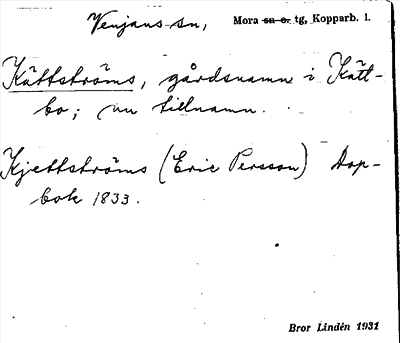 Venjans sn, Mora sn o. tg, Kopparb. l.
Kättströms, gårdsnamn i Kätt-
bo; nu tillnamn.
Kjettströms (Eric Persson) Dop-
bok 1833.
Bror Lindén 1931